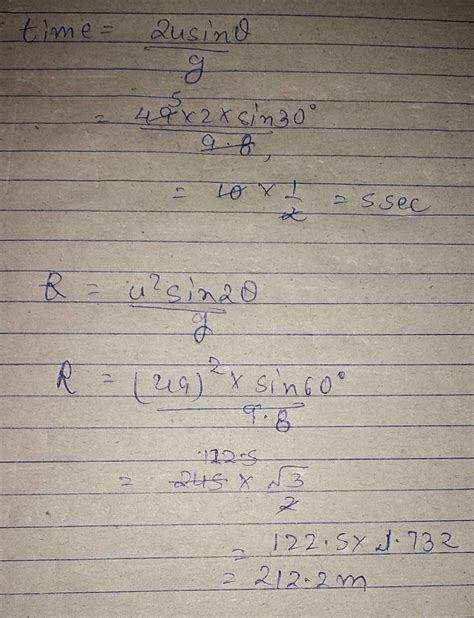 time = 2usinθ
g
5
= 49×2×sin30°
9.8
= 10 × 1/2 = 5 sec
R = u²sin2θ
g
R = (49)² × sin60°
9.8
122.5
= 245 × √3
2
= 122.5 × 1.732
= 212.2 m